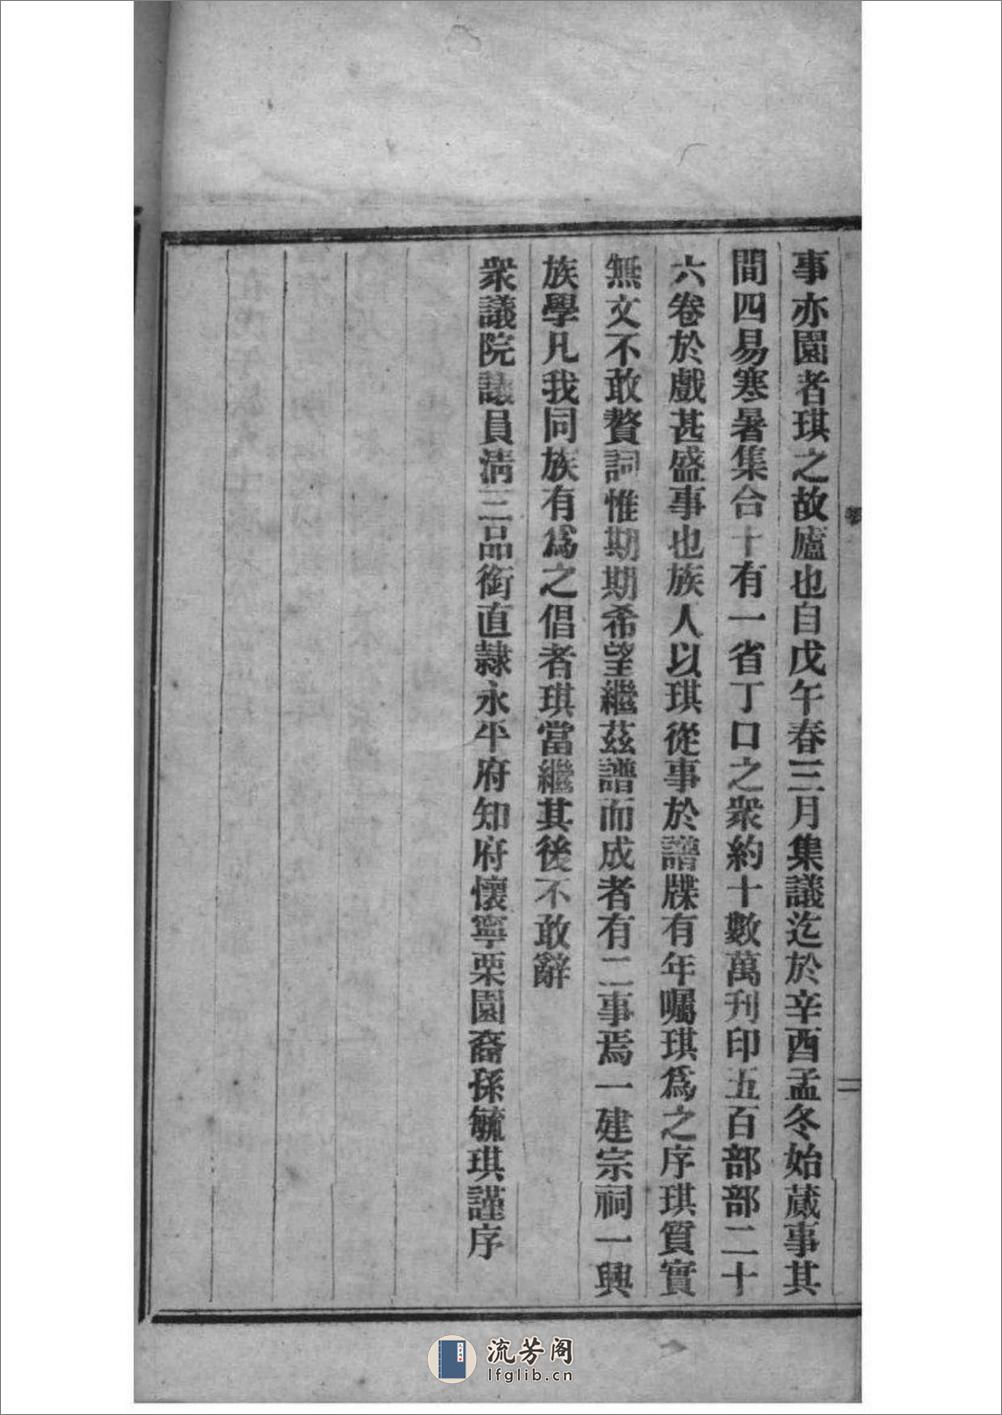 事亦園者琪之故廬也自戊午春三月集議迄於辛酉孟冬始蕆事其
間四易寒暑集合十有一省丁口之衆約十數萬刊印五百部部二十
六卷於戲甚盛事也族人以琪從事於譜牒有年囑琪爲之序琪質實
無文不敢贅詞惟期期希望繼茲譜而成者有二事焉一建宗祠一興
族學凡我同族有爲之倡者琪當繼其後不敢辭
衆議院議員淸三品銜直隷永平府知府懷寧栗園裔孫毓琪謹序
二
流芳阁
lfglib.cn